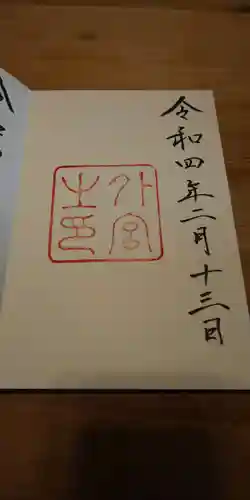 令和四年二月十三日
外宮之印